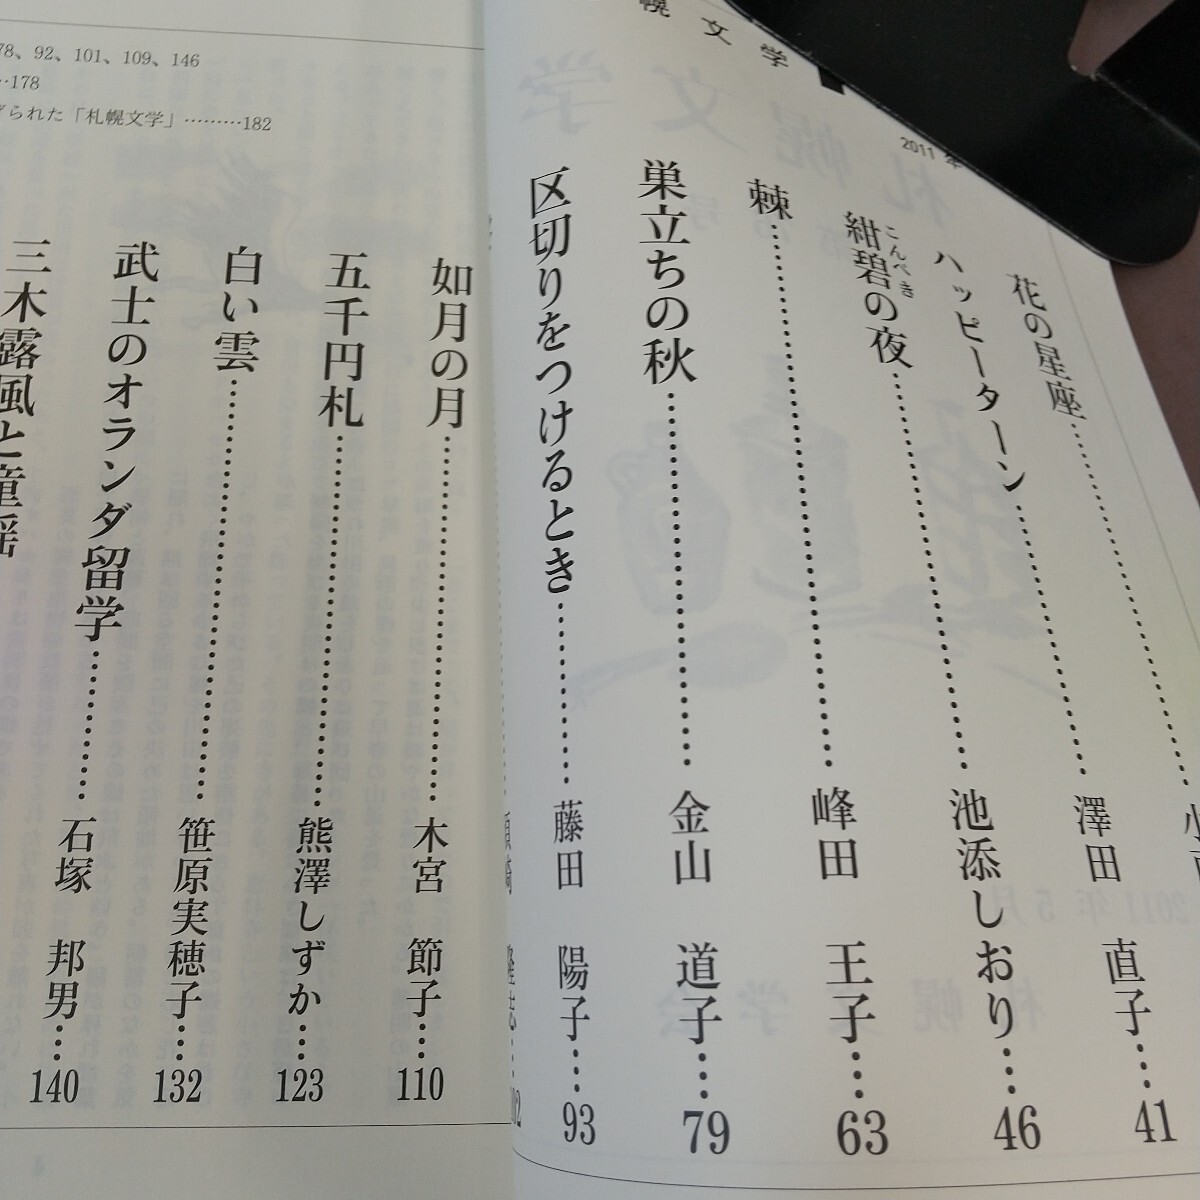 幌文学
2011年
花の星座……
ハッピーターン……澤田 直子……41
紺碧の夜……池添しおり……46
こんぺき
棘……峰田 王子……63
巣立ちの秋……金山 道子……79
区切りをつけるとき……藤田 陽子……93
如月の月……木宮 節子……110
五千円札……熊澤しずか……123
白い雲……笹原実穂子……132
武士のオランダ留学……石塚 邦男……140
三木露風と童謡
78、92、101、109、146
…178
られた「札幌文学」………182